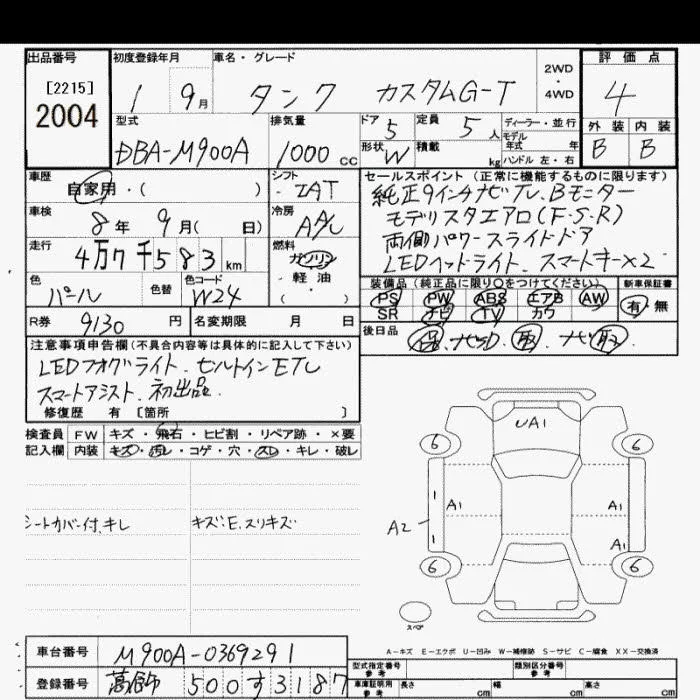 出品番号
[2215]
2004
初度登録年月
1 9月
車名・グレード
タンク カスタムG-T
2WD
・
4WD
評価点
4
外装 内装
B B
型式
DBA-M900A
排気量
1000 CC
ドア 5
定員 5 人
ディーラー・並行
モデル
年式 年
形状 W
積載 kg
ハンドル 左・右
車歴
自家用・( )
シフト
IAT
セールスポイント(正常に機能するものに限ります)
純正9インチナビTV、Bモニター
モデリスタエアロ(F・S・R)
両側パワースライドドア
LEDヘッドライト、スマートキー×2
車検
8年 9月( 日)
冷房
AAC
走行
4万7千583km
燃料
ガソリン
・軽油・
( )
色
パール
色替
色コード
W24
装備品(純正品に限り○をつけてください)
PS PW ABS エアB AW
SR ナビ TV カワ
新車保証書
有・無
R券 9130 円
名変期限 月 日
後日品
注意事項申告欄(不具合内容等は具体的に記入して下さい)
LEDフォグライト、ビルトインETC
スマートアシスト、初出品
修復歴 有 [箇所 ]
検査員 FW キズ・飛石・ヒビ割・リペア跡・×要
記入欄 内装 キズ・汚レ・コゲ・穴・スレ・キレ・破レ
シートカバー付、キレ
キズ:E、スリキズ
UA1
6 6
1 A1 A1
A2
1 A1
6 6
スペア
A-キズ E-エクボ U-凹み W-補修跡 S-サビ C-腐食 XX-交換済
車台番号 M900A-0369291
登録番号 葛飾 500す3187
型式指定番号
参考
類別区分番号
参考
車庫証明用
参考
長さ cm 幅 cm 高さ cm